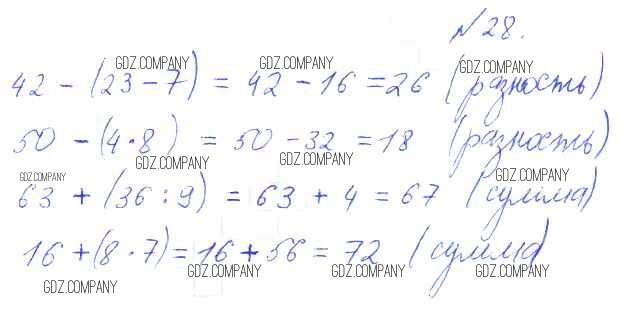 №28.
GDZ.COMPANY GDZ.COMPANY GDZ.COMPANY
42 - (23 - 7) = 42 - 16 = 26 (разность)
50 - (4 · 8) = 50 - 32 = 18 (разность)
GDZ.COMPANY GDZ.COMPANY GDZ.COMPANY GDZ.COMPANY
63 + (36 : 9) = 63 + 4 = 67 (сумма)
16 + (8 · 7) = 16 + 56 = 72 (сумма)
GDZ.COMPANY GDZ.COMPANY GDZ.COMPANY GDZ.COMPANY